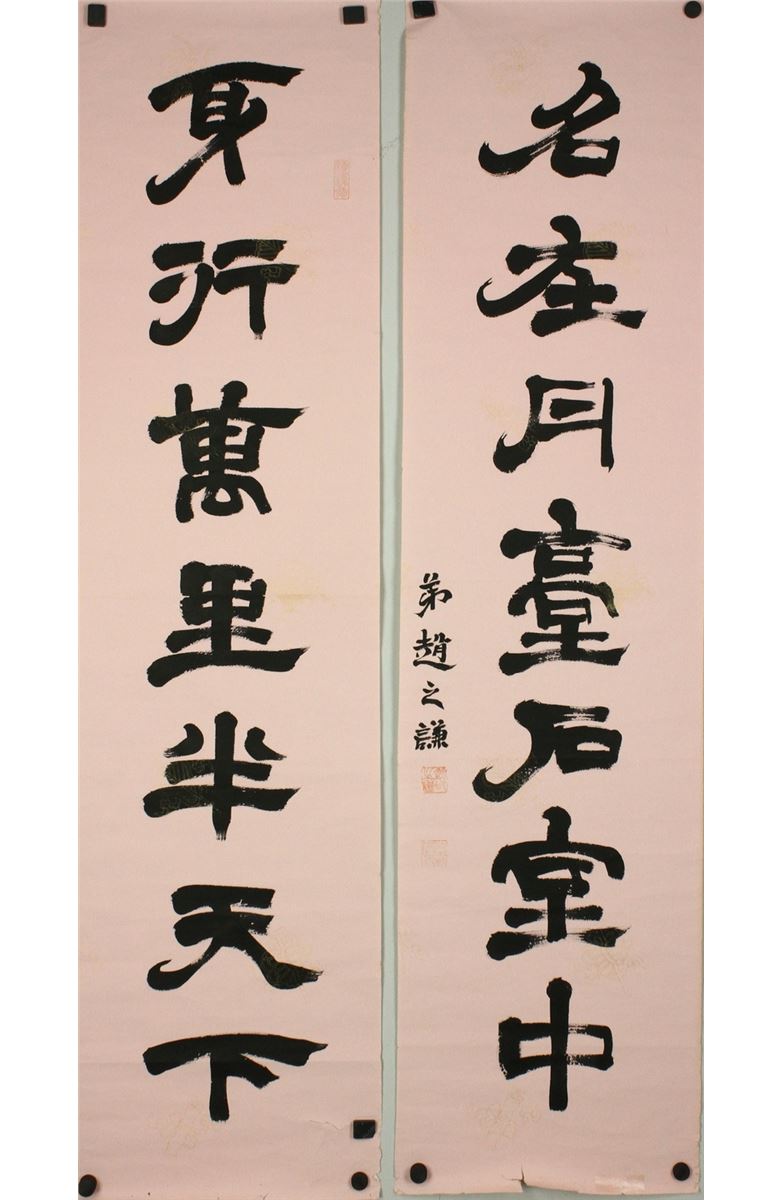 身行萬里半天下
名在丹臺石室中
弟趙之謙